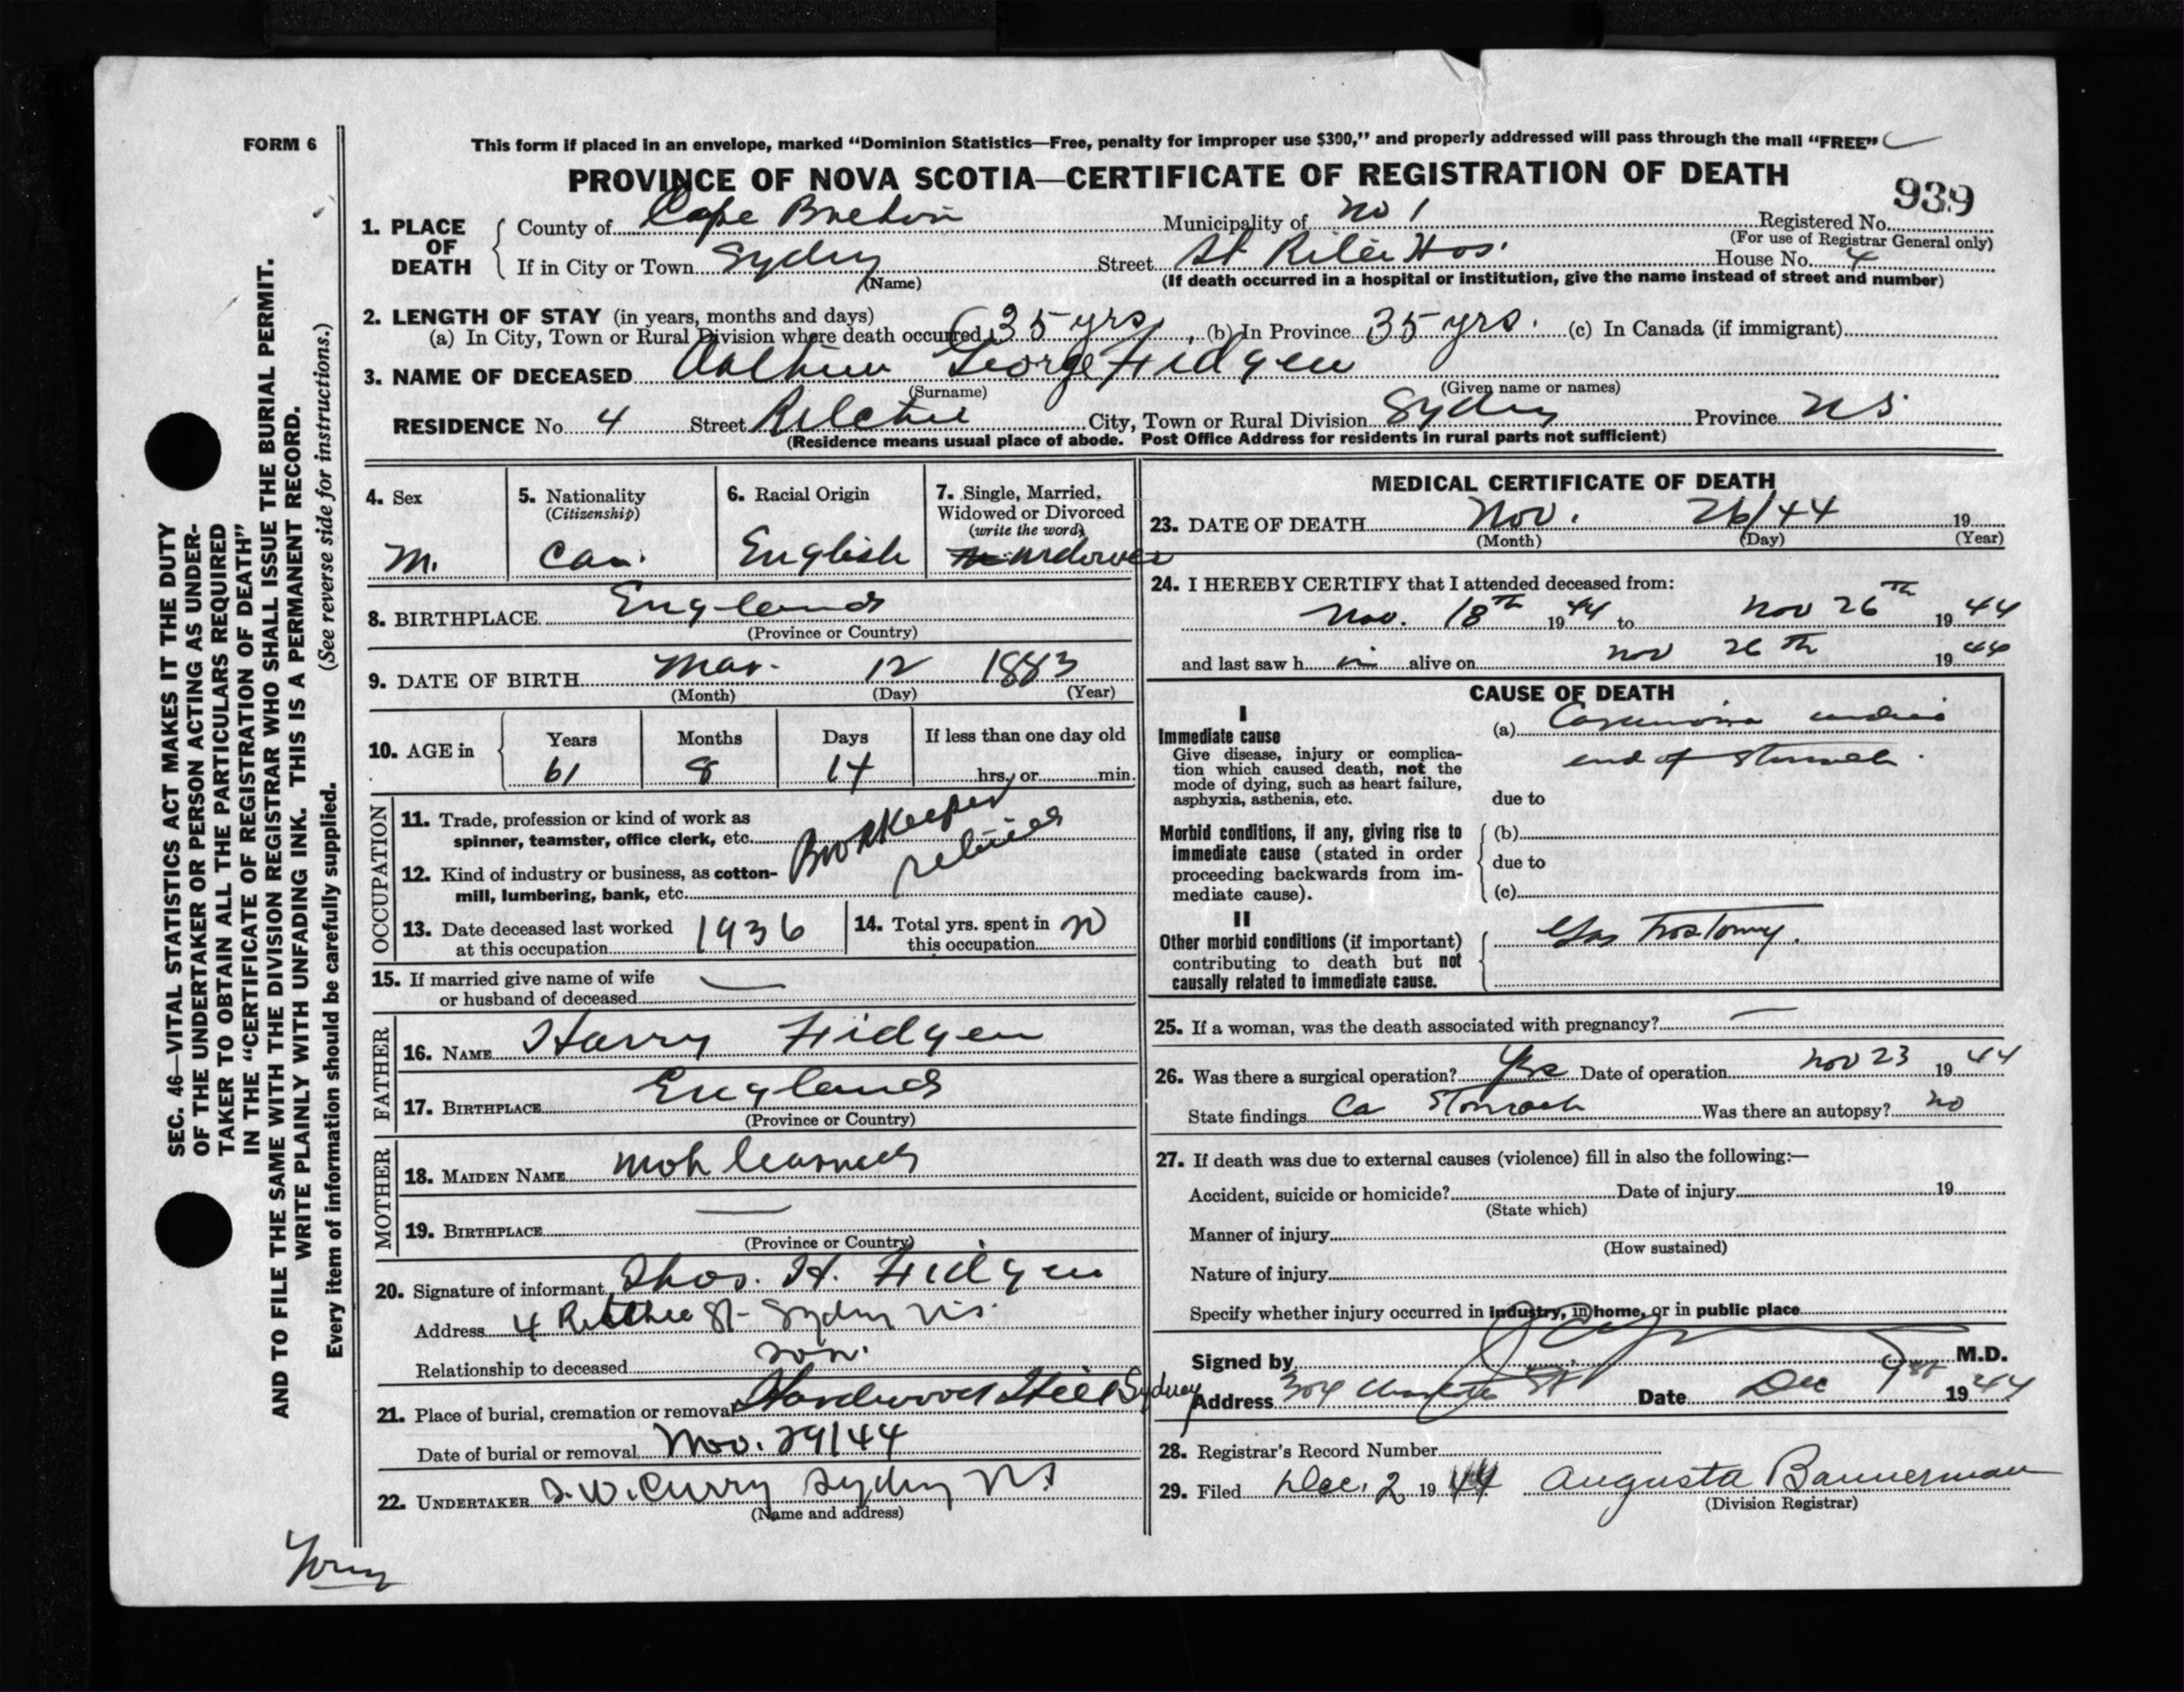 FORM 6
This form if placed in an envelope, marked “Dominion Statistics—Free, penalty for improper use $300,” and properly addressed will pass through the mail “FREE”
PROVINCE OF NOVA SCOTIA—CERTIFICATE OF REGISTRATION OF DEATH
939
1. PLACE OF DEATH
County of Cape Breton Municipality of No 1 Registered No.
(For use of Registrar General only)
If in City or Town Sydney Street St Hos. House No. 4
(Name)
(If death occurred in a hospital or institution, give the name instead of street and number)
2. LENGTH OF STAY (in years, months and days)
(a) In City, Town or Rural Division where death occurred 35 yrs, (b) In Province 35 yrs. (c) In Canada (if immigrant)
3. NAME OF DECEASED George Fidgen
(Surname) (Given name or names)
RESIDENCE No. 4 Street City, Town or Rural Division Sydney Province NS
(Residence means usual place of abode. Post Office Address for residents in rural parts not sufficient)
4. Sex
M.
5. Nationality
(Citizenship)
Can.
6. Racial Origin
English
7. Single, Married, Widowed or Divorced
(write the word)
Widower
8. BIRTHPLACE England
(Province or Country)
9. DATE OF BIRTH Mar. 12 1883
(Month) (Day) (Year)
10. AGE in
Years Months Days If less than one day old
61 8 14 hrs. or min.
OCCUPATION
11. Trade, profession or kind of work as
spinner, teamster, office clerk, etc. Bookkeeper
retired
12. Kind of industry or business, as cotton-
mill, lumbering, bank, etc.
13. Date deceased last worked
at this occupation 1936
14. Total yrs. spent in
this occupation
15. If married give name of wife
or husband of deceased —
FATHER
16. NAME Harry Fidgen
17. BIRTHPLACE England
(Province or Country)
MOTHER
18. MAIDEN NAME not learned
19. BIRTHPLACE —
(Province or Country)
20. Signature of informant Thos. H. Fidgen
Address 4 Ritchie St- Sydney N.S.
Relationship to deceased son.
21. Place of burial, cremation or removal Hardwood Hill Sydney
Date of burial or removal Nov. 29/44
22. UNDERTAKER W. Curry Sydney NS
(Name and address)
MEDICAL CERTIFICATE OF DEATH
23. DATE OF DEATH Nov. 26/44 19
(Month) (Day) (Year)
24. I HEREBY CERTIFY that I attended deceased from:
Nov. 18th 1944 to Nov 26th 1944
and last saw h im alive on Nov 26th 1944
CAUSE OF DEATH
I
Immediate cause
Give disease, injury or complica-
tion which caused death, not the
mode of dying, such as heart failure,
asphyxia, asthenia, etc.
(a) Carcinoma cardiac
end of stomach.
due to
Morbid conditions, if any, giving rise to
immediate cause (stated in order
proceeding backwards from im-
mediate cause).
(b)
due to
(c)
II
Other morbid conditions (if important)
contributing to death but not
causally related to immediate cause.
Gastrostomy.
25. If a woman, was the death associated with pregnancy? —
26. Was there a surgical operation? Yes Date of operation Nov 23 1944
State findings Ca Stomach Was there an autopsy? no
27. If death was due to external causes (violence) fill in also the following:—
Accident, suicide or homicide? Date of injury 19
(State which)
Manner of injury
(How sustained)
Nature of injury
Specify whether injury occurred in industry, in home, or in public place
Signed by M.D.
Address 304 Charlotte St Date Dec 1944
28. Registrar's Record Number
29. Filed Dec. 2 1944 Augusta Bannerman
(Division Registrar)
SEC. 46—VITAL STATISTICS ACT MAKES IT THE DUTY
OF THE UNDERTAKER OR PERSON ACTING AS UNDER-
TAKER TO OBTAIN ALL THE PARTICULARS REQUIRED
IN THE “CERTIFICATE OF REGISTRATION OF DEATH”
AND TO FILE THE SAME WITH THE DIVISION REGISTRAR WHO SHALL ISSUE THE BURIAL PERMIT.
WRITE PLAINLY WITH UNFADING INK. THIS IS A PERMANENT RECORD.
Every item of information should be carefully supplied. (See reverse side for instructions.)